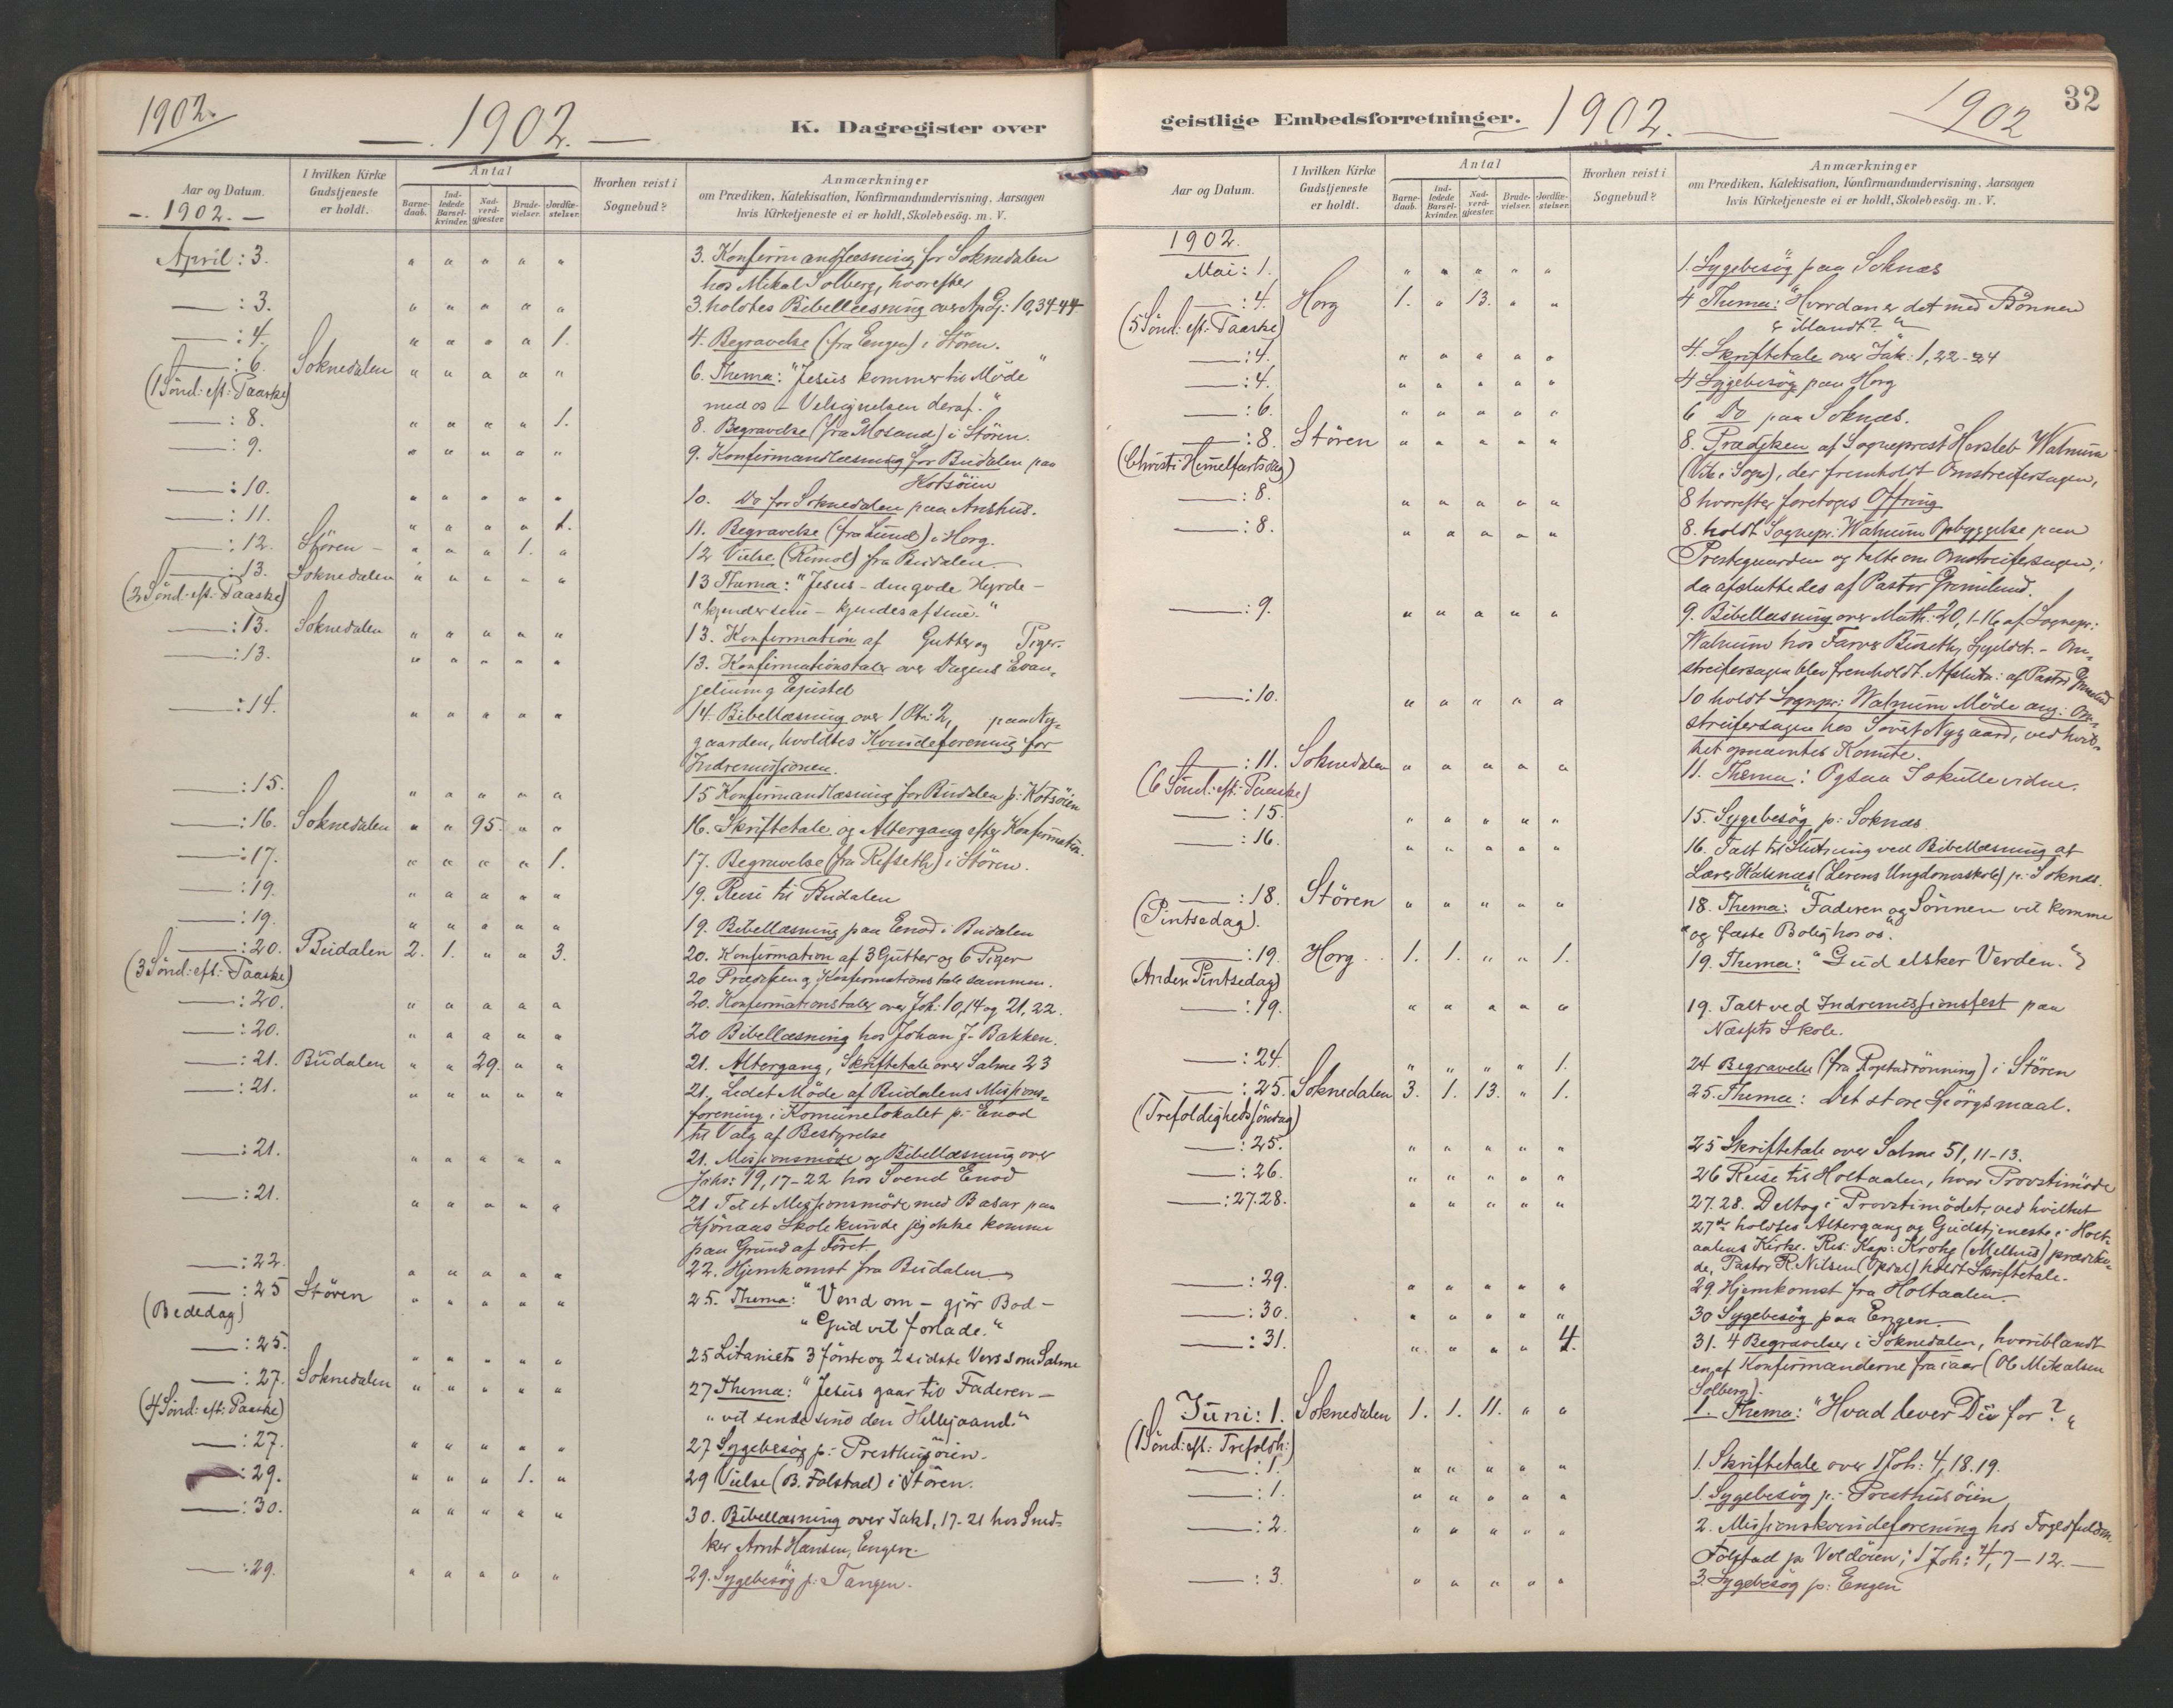 1902.
1902.
K. Dagregister over
Aar og Datum.
1902.
I hvilken Kirke
Gudstjeneste
er holdt.
Antal
Barne-
daab.
Ind-
ledede
Barsel-
kvinder.
Nad-
verd-
gjæster.
Brude-
vielser.
Jordfæ-
stelser.
Hvorhen reist i
Sognebud?
Anmærkninger
om Prædiken, Katekisation, Konfirmandundervisning, Aarsagen
hvis Kirketjeneste ei er holdt, Skolebesøg. m. V.
April: 3. " " " " " 3. Konfirmandlæsning for Soknedalen
hos Mikal Solberg, hvorefter
: 3. " " " " " 3. holdtes Bibellæsning over Ap. Gj: 10,34-44
: 4. " " " " 1. 4. Begravelse (fra Engen) i Stören.
: 6. Soknedalen " " " " " 6. Thema: "Jesus kommer til Möde"
(1 Sönd: eft: Paaske) med os - Velsignelsen deraf."
: 8. " " " " 1. 8. Begravelse (fra Mosand) i Stören.
: 9. " " " " " 9. Konfirmandlæsning for Budalen paa
Kotsöien
: 10. " " " " " 10. Do for Soknedalen paa Aashus.
: 11. " " " " 1. 11. Begravelse (fra Lund) i Horg.
: 12. Stören - " " " 1. " 12 Vielse (Rimol) fra Budalen.
: 13. Soknedalen " " " " " 13 Thema: "Jesus - den gode Hyrde -
(2 Sönd: eft: Paaske) "kjender sine - kjendes af sine."
: 13. Soknedalen " " " " " 13. Konfirmation af Gutter og Piger.
: 13. " " " " " 13. Konfirmationstaler over Dagens Evan-
gelium og Epistel
: 14. " " " " " 14. Bibellæsning over 1 Ptr: 2, paa Ny-
gaarden, hvoldtes Kvindeforening for
Indremissionen.
: 15. " " " " " 15 Konfirmandlæsning for Budalen p: Kotsöien
: 16. Soknedalen " " 95. " " 16. Skriftetale og Altergang efter Konfirmation.
: 17. " " " " 1. 17. Begravelse (fra Refseth) i Stören.
: 19. " " " " " 19. Reise til Budalen
: 19. " " " " " 19. Bibellæsning paa Enod i Budalen
: 20. Budalen 2. 1. " " 3. 20. Konfirmation af 3 Gutter og 6 Piger
(3 Sönd: eft: Paaske) 20 Prædiken og Konfirmationstale sammen.
: 20. " " " " " 20. Konfirmationstaler over Joh: 10,14 og 21,22.
: 20. " " " " " 20 Bibellæsning hos Johan J. Bakken.
: 21. Budalen " " 29. " " 21. Altergang, Skriftetale over Salme 23
: 21. " " " " " 21. Ledet Möde af Budalens Missions-
forening i Komunelokalet p: Enod
til Valg af Bestyrelse
: 21. " " " " " 21. Missionsmöde og Bibellæsning over
Johs: 19,17-22 hos Svend Enod
: 21. " " " " " 21 Til et Missionsmöde med Basar paa
Skole kunde jeg ikke komme
paa Grund af Föret
: 22. " " " " " 22. Hjemkomst fra Budalen
: 25 Stören " " " " " 25. Thema: "Vend om - gjör Bod -
(Bededag) "Gud vil forlade."
: 25. " " " " " 25 Litaniets 3 förste og 2 sidste Vers som Salme
: 27. Soknedalen " " " " " 27 Thema: "Jesus gaar til Faderen -
(4 Sönd: eft: Paaske) "vil sende sine den Helligaand."
: 27. " " " " " 27 Sygebesög p: Presthusöien.
: 29. " " " 1. " 29 Vielse (B. Folstad) i Stören.
: 30. " " " " " 30. Bibellæsning over Jak 1, 17-21 hos Sned-
ker Arnt Hansen, Engen.
: 29. " " " " " 29. Sygebesög p: Tangen.
geistlige Embedsforretninger.
1902.
1902
32
Aar og Datum.
I hvilken Kirke
Gudstjeneste
er holdt.
Antal
Barne-
daab.
Ind-
ledede
Barsel-
kvinder.
Nad-
verd-
gjæster.
Brude-
vielser.
Jordfæ-
stelser.
Hvorhen reist i
Sognebud?
Anmærkninger
om Prædiken, Katekisation, Konfirmandundervisning, Aarsagen
hvis Kirketjeneste ei er holdt, Skolebesøg. m. V.
1902.
Mai: 1. " " " " " 1. Sygebesög paa Soknæs
: 4. Horg 1. " 13. " " 4 Thema: "Hvordan er det med Bönnen
(5 Sönd: eft: Paaske) iblandt?"
: 4. " " " " " 4. Skriftetale over Jak: 1,22-24
: 4. " " " " " 4 Sygebesög paa Horg
: 6. " " " " " 6 Do paa Soknæs.
: 8. Stören " " " " " 8. Prædiken af Sogneprest Harsleb Walnum
(Christi Himelfartsdag) (Vik i Sogn), der fremholdt Omstreifersagen,
: 8. " " " " " 8 hvorefter foretoges Offring
: 8. " " " " " 8. holdt Sognepr: Walnum Opbyggelse paa
Prestegaarden og talte om Omstreifersagen;
da afsluttedes af Pastor Grönlund.
: 9. " " " " " 9. Bibellæsning over Math: 20,1-16 af Sognepr:
Walnum hos Farver Buseth, - Om-
streifersagen blev fremholdt. Afslutn: af Pastor Grönlund
: 10. " " " " " 10 holdt Sognpr: Walnum Möde ang: Om-
streifersagen hos Sivert Nygaard, ved hvil-
ket opnævntes Komite.
: 11. Soknedalen " " " " " 11. Thema: Ogsaa I skulle vidne.
(6 Sönd: eft: Paaske)
: 15. " " " " " 15. Sygebesög p: Soknæs
: 16. " " " " " 16. Talt til Slutning ved Bibellæsning af
Lærer Walsnæs (Lerens Ungdomsskole) p: Soknæs.
: 18. Stören " " " " " 18. Thema: "Faderen og Sönnen vil komme
(Pintsedag). "og fæste Bolig hos os."
: 19. Horg 1. 1. " " 1. 19. Thema: "Gud elsker Verden."
(Anden Pintsedag)
: 19. " " " " " 19. Talt ved Indremissionsfest paa
Næssets Skole.
: 24. " " " " 1. 24 Begravelse (fra Ropstadrönning) i Stören
: 25. Soknedalen 3. 1. 13. " 1. 25. Thema: Det store Spörgsmaal.
(Trefoldighedssöndag)
: 25. " " " " " 25 Skriftetale over Salme 51, 11-13.
: 26. " " " " " 26 Reise til Holtaalen, hvor Provstimöde
: 27.28. " " " " " 27.28. Deltog i Provstimödet, ved hvilket
27de holdtes Altergang og Gudstjeneste i Holt-
aalens Kirke. Res: Kap: Krohg (Melhus) prædike-
de, Pastor R. Nilsen (Opdal) holdt Skriftetale.
: 29. " " " " " 29. Hjemkomst fra Holtaalen
: 30. " " " " " 30 Sygebesög paa Engen.
: 31. " " " " 4. 31. 4 Begravelser i Soknedalen, hvoriblandt
en af Konfirmanderne fra iaar (Ole Mikalsen
Solberg).
Juni: 1. Soknedalen 1. 1. 11. " " 1. Thema: "Hvad lever Du for?"
(1 Sönd: eft: Trefoldh:)
: 1. " " " " " 1. Skriftetale over 1 Joh: 4, 18.19.
: 1. " " " " " 1. Sygebesög p: Presthusöien
: 2. " " " " " 2. Missionskvindeforening hos Fogedfuldm.
Folstad pa Voldöien; 1 Joh: 4, 7-12.
: 3. " " " " " 3. Sygebesög p: Engen